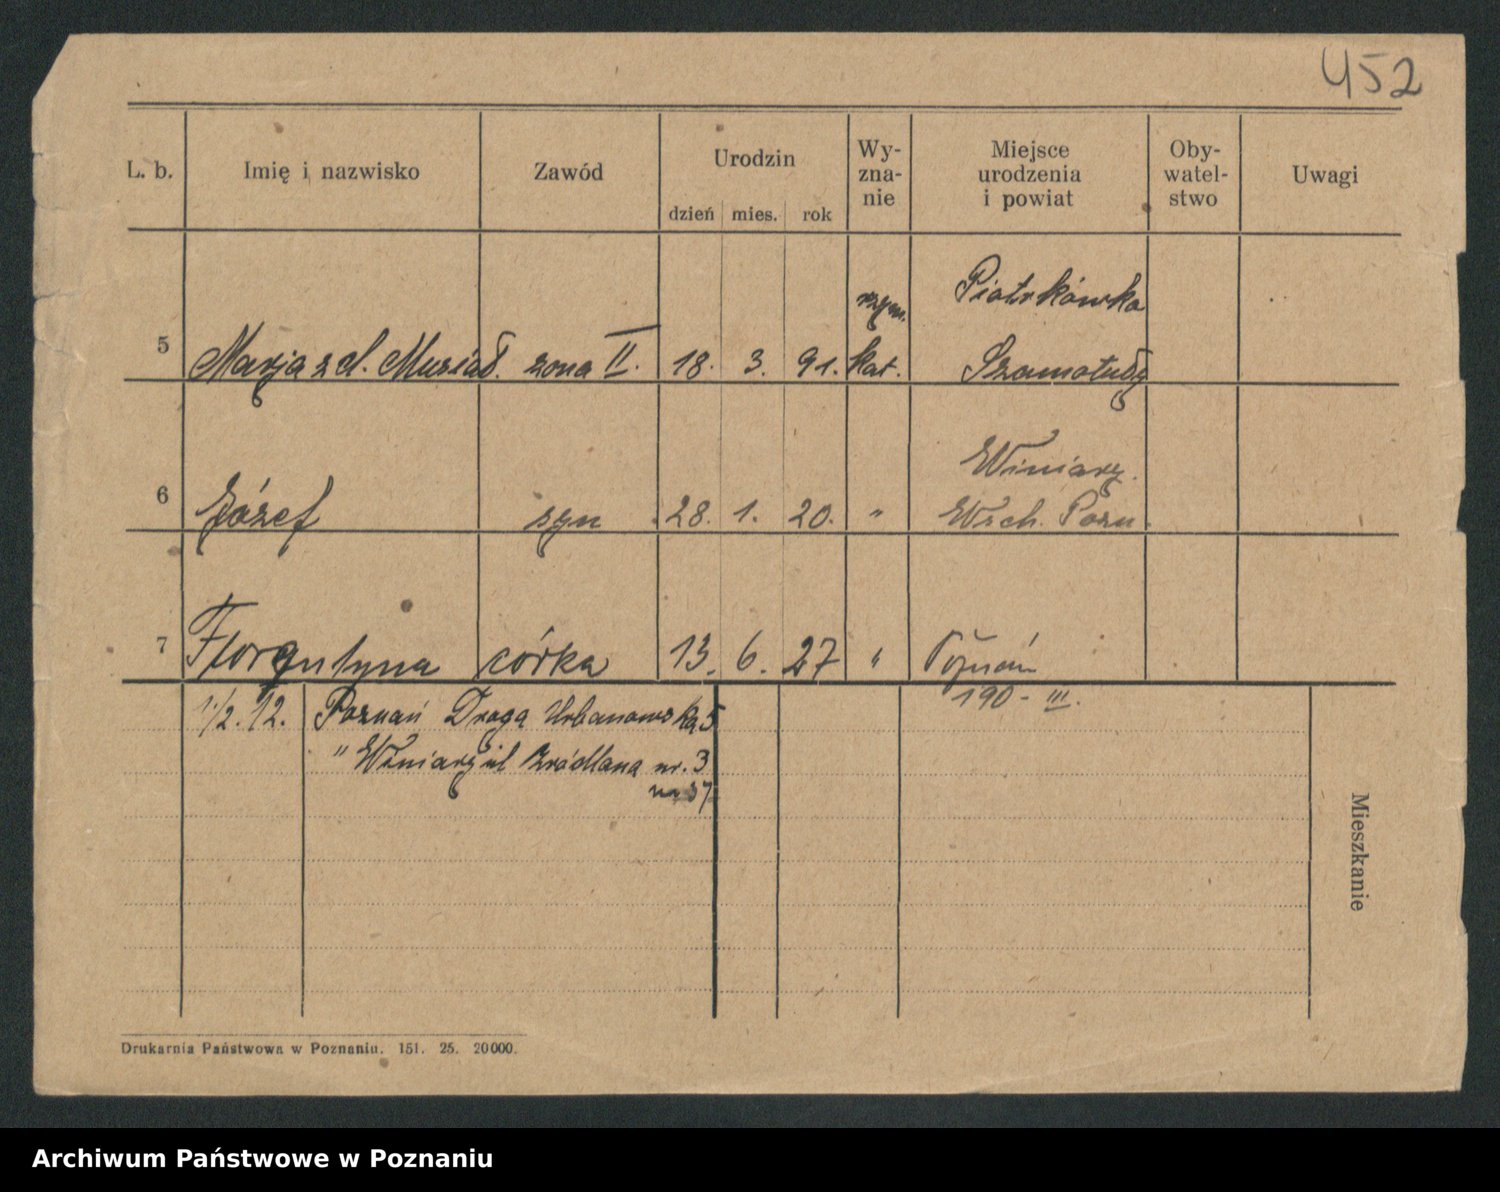 452
L. b. Imię i nazwisko Zawód Urodzin dzień mies. rok Wy-zna-nie Miejsce urodzenia i powiat Oby-watel-stwo Uwagi
rzym. Piotrkówka
5 Marja z d. Musiał. żona II. 18. 3. 91. kat. Szamotuły
Winiary.
6 Józef syn 28. 1. 20. " Wsch. Pozn.
7 Florentyna córka 13. 6. 27 " Poznań
190 - III.
1/2. 12. Poznań Droga Urbanowska 5
" Winiary ul Źródlana nr. 3
nr 37
Mieszkanie
Drukarnia Państwowa w Poznaniu. 151. 25. 20000.
Archiwum Państwowe w Poznaniu